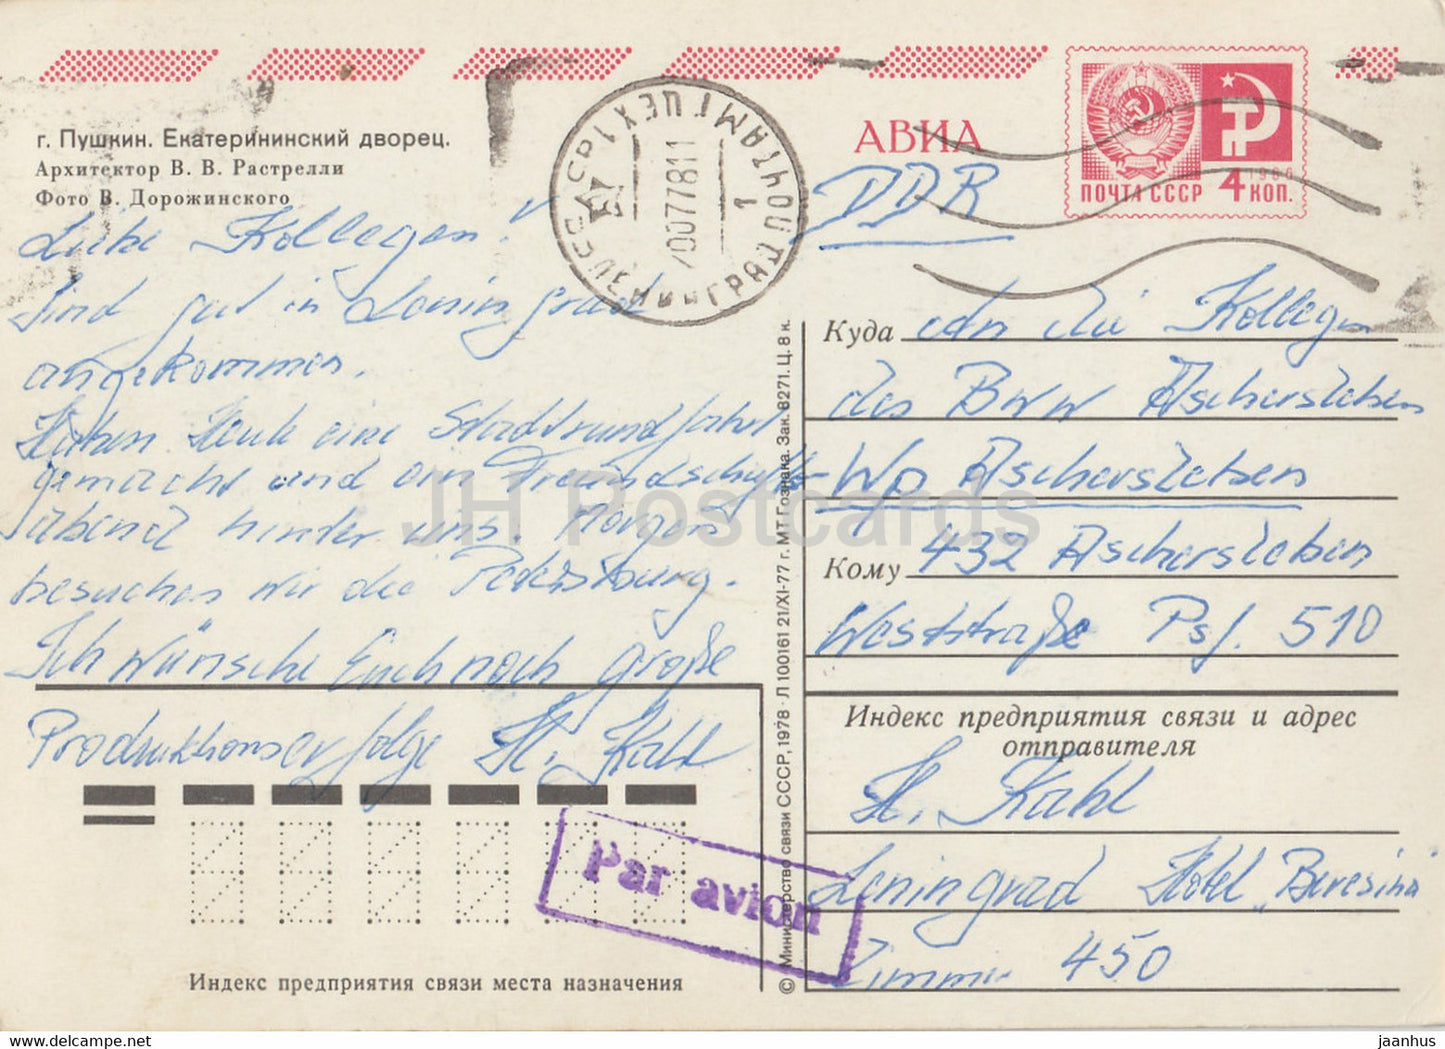 г. Пушкин. Екатерининский дворец.
Архитектор В. В. Растрелли
Фото В. Дорожинского
АВИА
ПОЧТА СССР 4 КОП.
1966
ЛЕНИНГРАД ПОЧТАМТ ЦЕХ 1
DDR
Liebe Kollegen!
Sind gut in Leningrad
angekommen.
Haben Heute eine Stadtrundfahrt
gemacht und ein Freundschafts-
abend hinter uns. Morgen
besuchen wir die Petersburg.
Ich wünsche Euch noch große
Produktionserfolge H. Kahl
Куда An die Kollegen
des Bww Aschersleben
Wp Aschersleben
Кому 432 Aschersleben
Weststraße Psf. 510
Индекс предприятия связи и адрес
отправителя
H. Kahl
Leningrad Hotel „Beresina
Zimmer 450
Par avion
Индекс предприятия связи места назначения
© Министерство связи СССР, 1978 · Л 100161 21/XI-77 г. МТ Гознака. Зак. 8271. Ц. 8 к.
JH Postcards
www.hippostcard.com
jaanhus